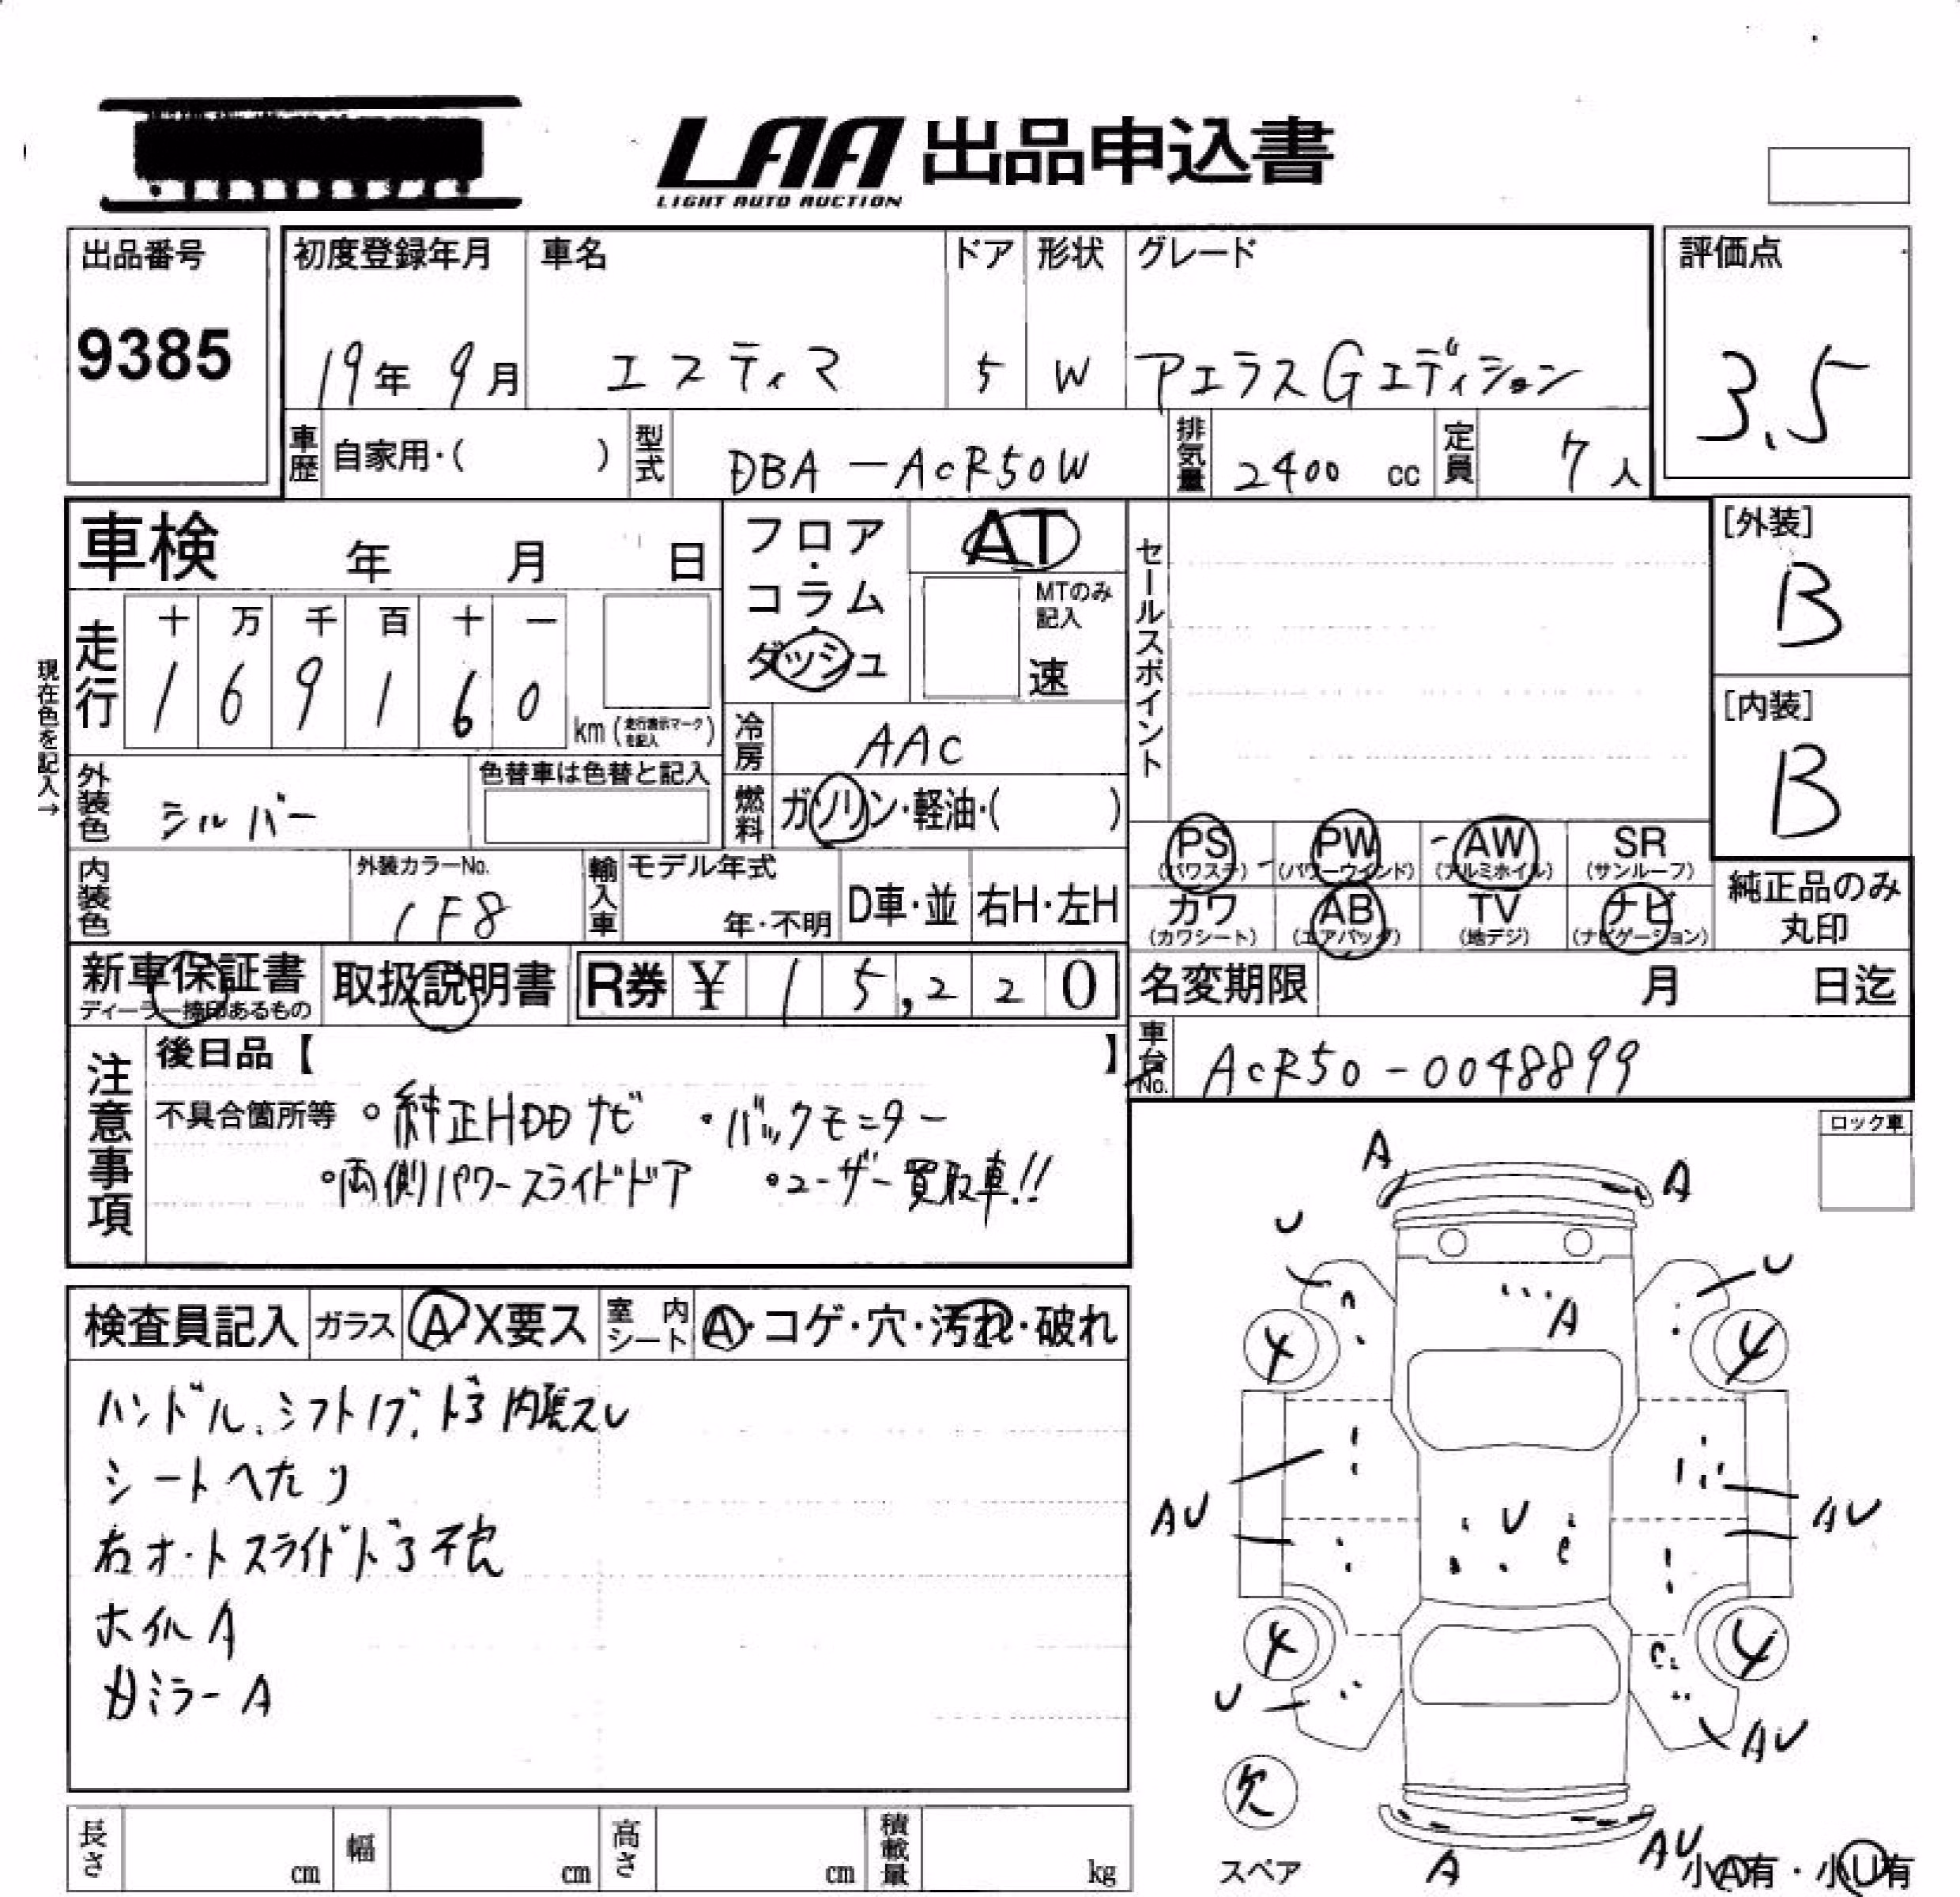 LAA 出品申込書
LIGHT AUTO AUCTION
出品番号
9385
初度登録年月
19年 9月
車名
エスティマ
ドア
5
形状
W
グレード
アエラスGエディション
評価点
3.5
車歴
自家用・( )
型式
DBA-ACR50W
排気量
2400 cc
定員
7人
車検 年 月 日
フロア・コラム・ダッシュ
AT
MTのみ記入
速
セールスポイント
[外装]
B
[内装]
B
現在色を記入→
走行
十 万 千 百 十 一
1 6 9 1 6 0
km (走行表示マークを記入)
冷房
AAC
燃料
ガソリン・軽油・( )
外装色
シルバー
色替車は色替と記入
内装色
外装カラーNo.
1F8
輸入車
モデル年式
年・不明
D車・並
右H・左H
PS (パワステ)
PW (パワーウインド)
AW (アルミホイル)
SR (サンルーフ)
カワ (カワシート)
AB (エアバッグ)
TV (地デジ)
ナビ (ナビゲーション)
純正品のみ丸印
新車保証書
ディーラー捺印あるもの
取扱説明書
R券 ¥ 15,220
名変期限 月 日迄
車台No.
ACR50-0048899
注意事項
後日品【 】
不具合箇所等 ・純正HDDナビ ・バックモニター
・両側パワースライドドア ・ユーザー買取車!!
ロック車
検査員記入
ガラス
A X要ス
室内シート
A・コゲ・穴・汚れ・破れ
ハンドル、シフトノブ、ドア内張スレ
シートへたり
右オートスライドドア不良
ホイルA
ミラーA
A A
U U
A
4 4
AU U AU
4 4
U AU
欠
スペア
A AU
小A有・小U有
長さ cm
幅 cm
高さ cm
積載量 kg